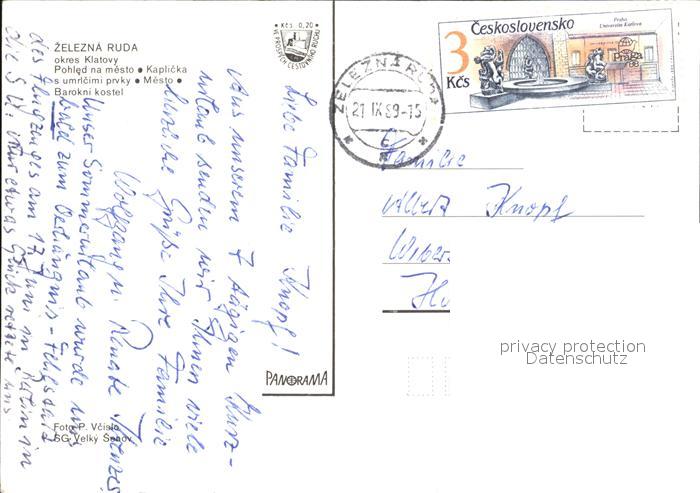 ŽELEZNÁ RUDA
okres Klatovy
Pohled na město • Kaplička
s umrlčími prvky • Město •
Barokní kostel
• Kčs 0,20 •
Československo
3
Kčs
Praha
Universita Karlova
Praha
88
ŽELEZNÁ RUDA
21.IX.89-15
Liebe Familie Knopf!
Aus unserem 7 tägigen Kurz-
urlaub senden wir Ihnen viele
herzliche Grüße Ihre Familie
Wolfgang u. Renate
Unser Sommerurlaub wurde uns
bald zum Verhängnis -
des Flugzeuges am 17. Juni in
die SU. nur etwas Glück rettete uns.
Familie
Albert Knopf
PANORAMA
Foto P. Včislo
SG Velký Šenov
privacy protection
Datenschutz